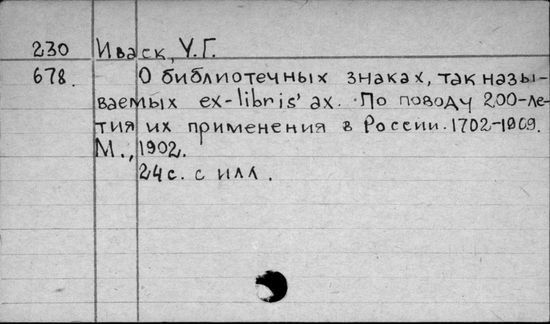 230 Иваск, У.Г.
678. О библиотечных знаках, так назы-
ваемых ex-libris' ах. По поводу 200-ле-
тия их применения в России. 1702-1909.
М., 1902.
24 с. с илл.